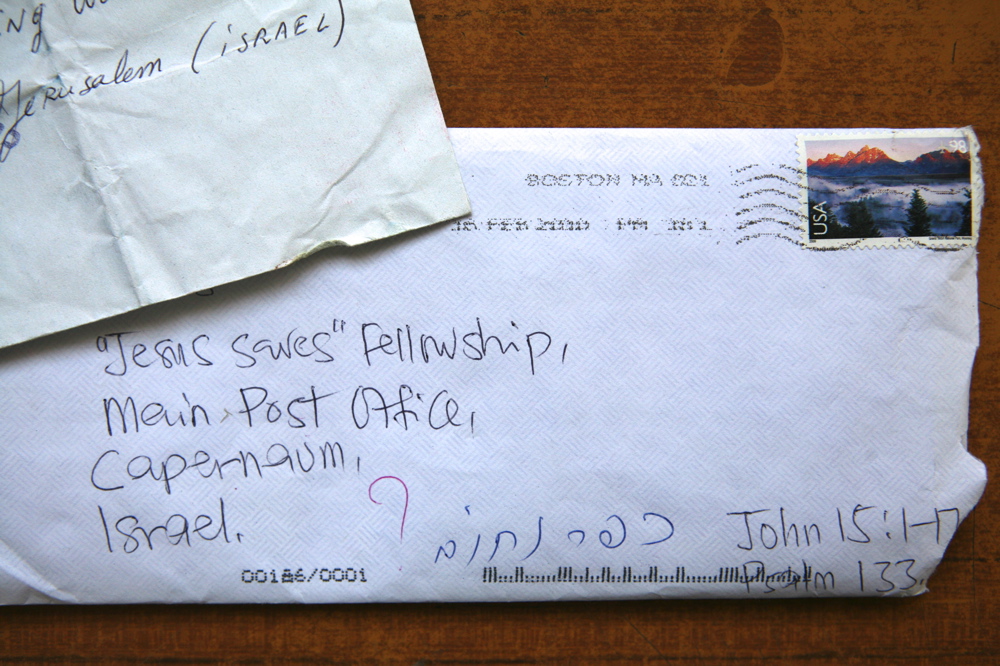 ING
Jerusalem (iSRAEL)
BOSTON MA 021
FEB 2010 PM
98
USA
"Jesus saves" Fellowship,
Main Post Office,
Capernaum,
Israel.
?
כפר נחום
John 15:1-17
Psalm 133
00186/0001